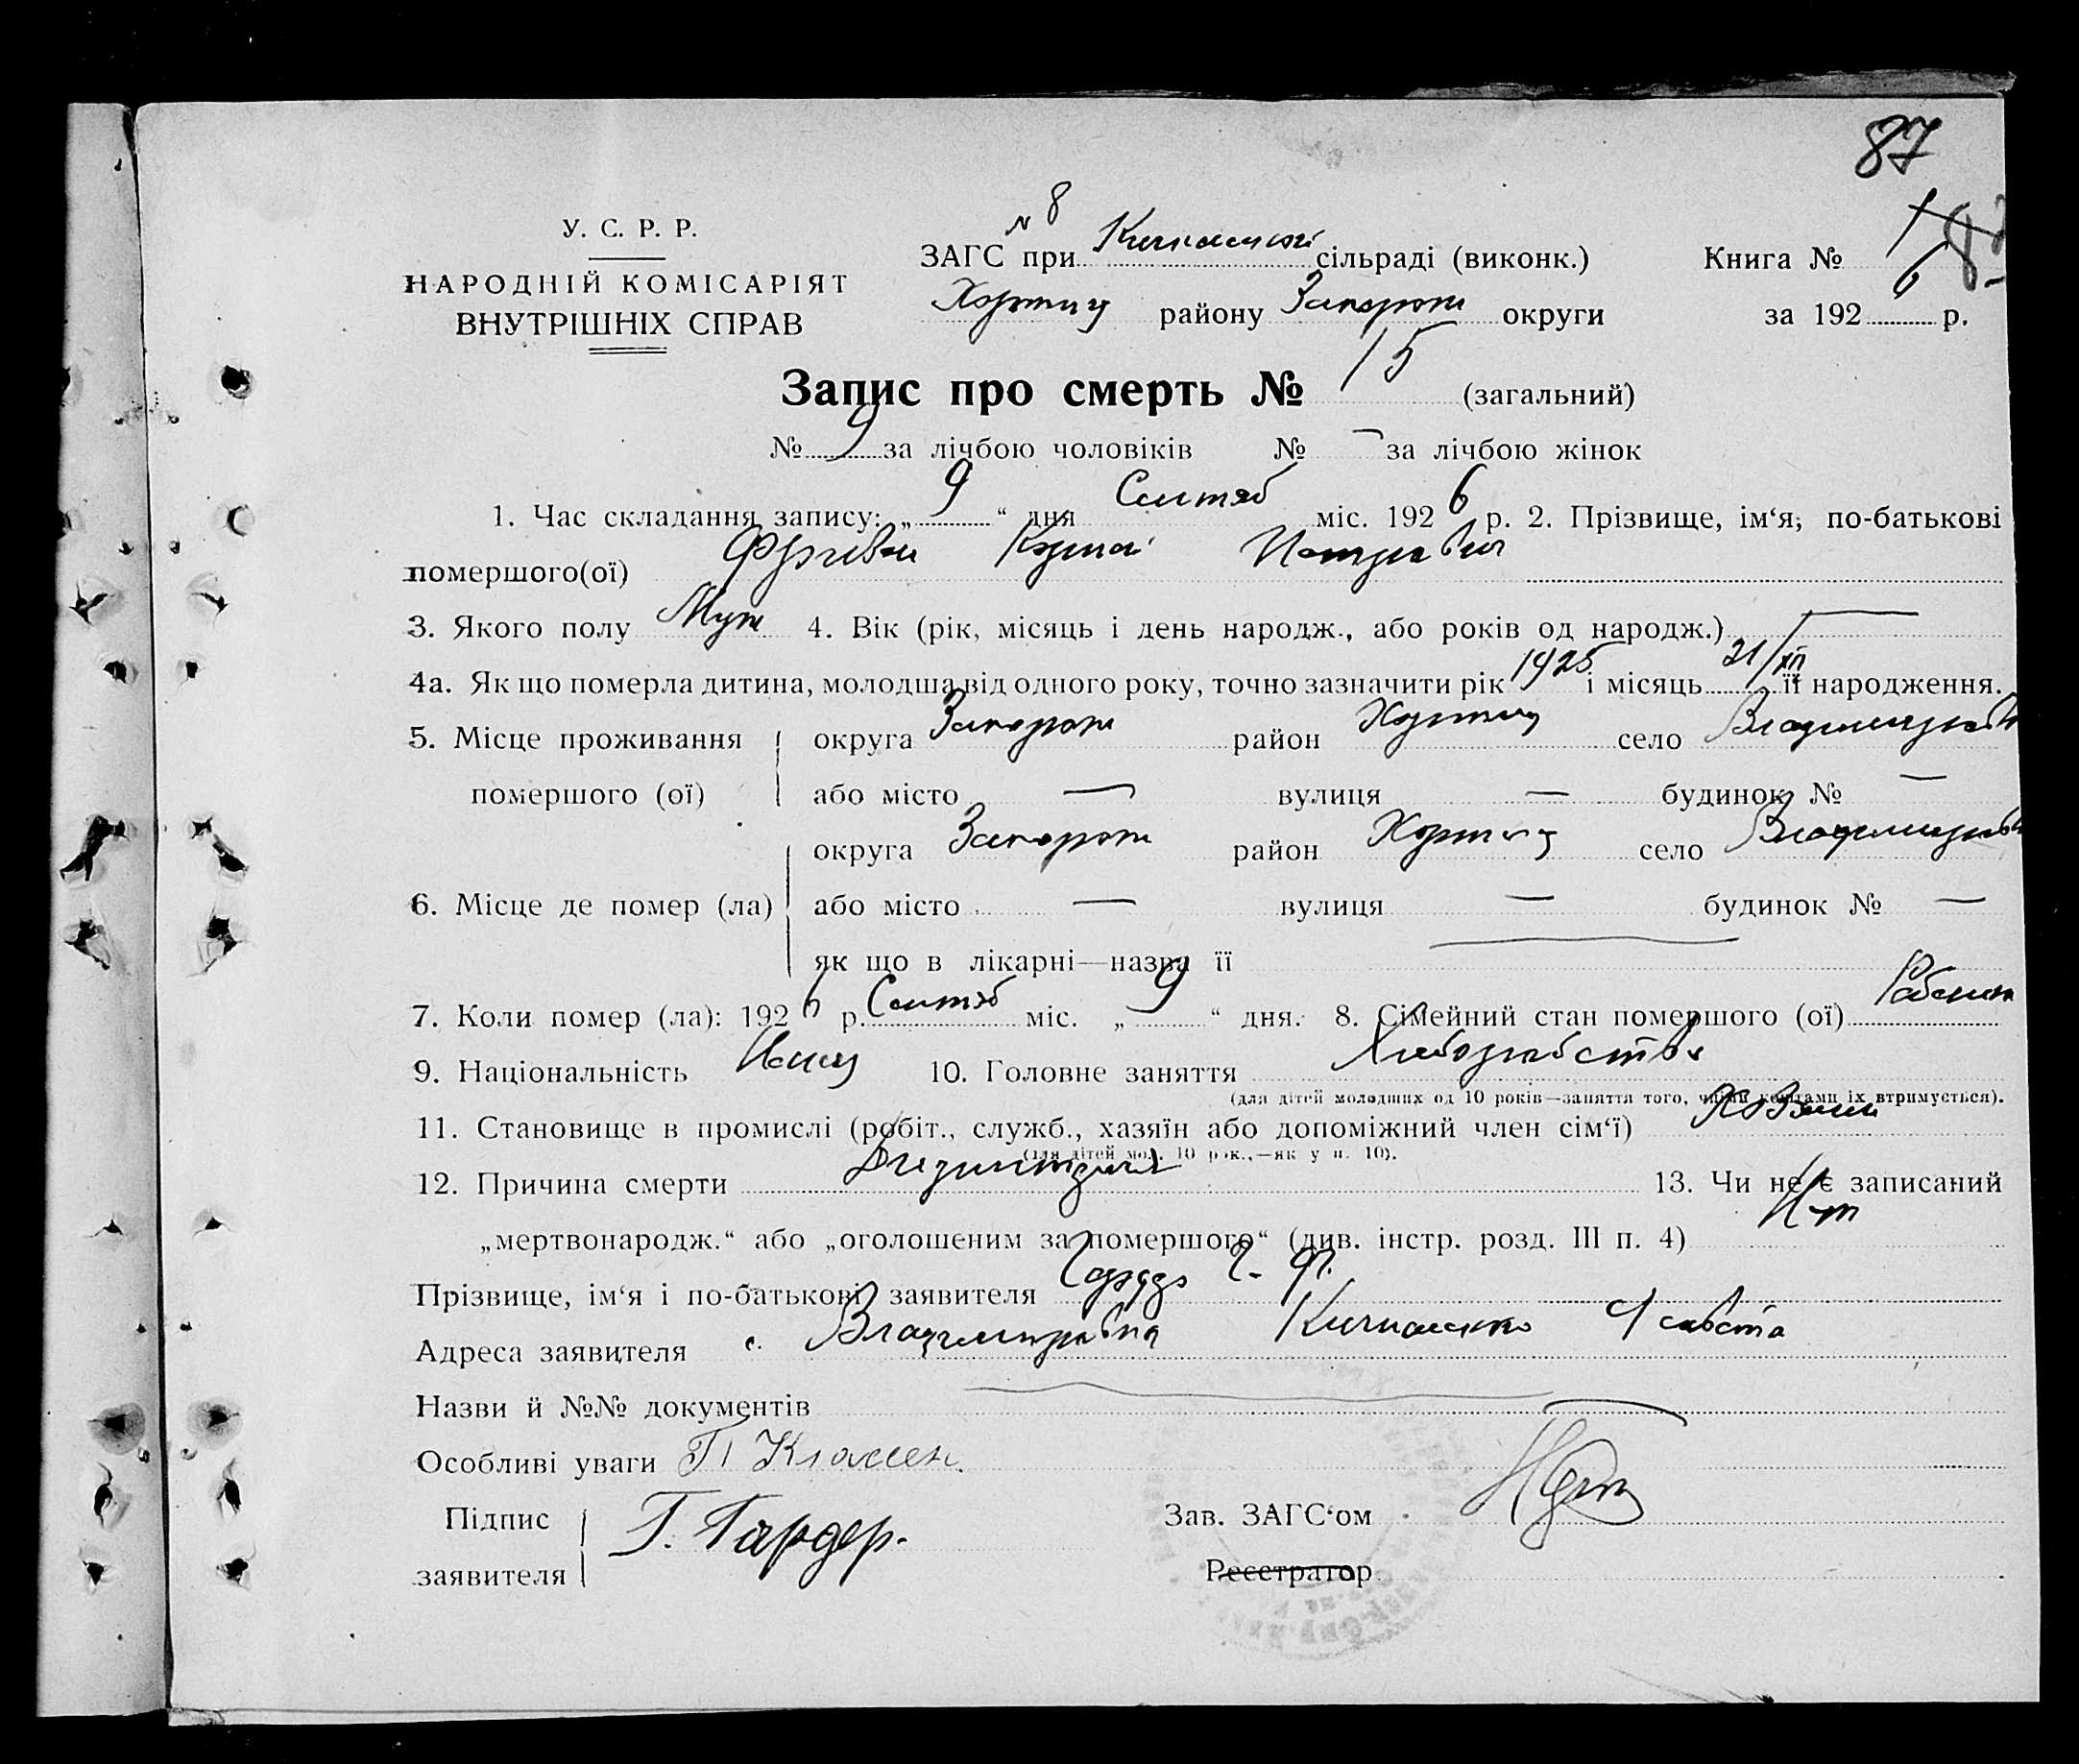 87
У. С. Р. Р.
НАРОДНІЙ КОМІСАРІЯТ
ВНУТРІШНІХ СПРАВ
N 8
ЗАГС при сільраді (виконк.)
Хортиц району Запорож округи
Книга № 1
за 1926 р.
Запис про смерть № 15 (загальний)
№ 9 за лічбою чоловіків № — за лічбою жінок
1. Час складання запису: „9“ дня Сентяб міс. 1926 р. 2. Прізвище, ім‘я, по-батькові
помершого(ої) Корней Петрович
3. Якого полу Муж 4. Вік (рік, місяць і день народж., або років од народж.) —
4а. Як що померла дитина, молодша від одного року, точно зазначити рік 1925 і місяць 21/XII її народження.
5. Місце проживання помершого (ої)
округа Запорож район Хортиц село Владимировк
або місто — вулиця — будинок № —
6. Місце де помер (ла)
округа Запорож район Хортиц село Владимировк
або місто — вулиця — будинок № —
як що в лікарні—назва її —
7. Коли помер (ла): 1926 р. Сентяб міс. „9“ дня. 8. Сімейний стан помершого (ої) Ребенок
9. Національність Немец 10. Головне заняття Хлебопашество
(для дітей молодших од 10 років—заняття того, чиїми коштами їх втримується).
11. Становище в промислі (робіт., служб., хазяїн або допоміжний член сім‘ї) Хозяин
(для дітей мол. 10 рок.,—як у п. 10).
12. Причина смерти Дизинтерия 13. Чи не є записаний
„мертвонародж.“ або „оголошеним за помершого“ (див. інстр. розд. III п. 4) Нет
Прізвище, ім‘я і по-батькові заявителя
Адреса заявителя с. Владимировка Сельсовета
Назви й №№ документів —
Особливі уваги П Классен.
Підпис заявителя Г. Гардер.
Зав. ЗАГС‘ом
Реєстратор